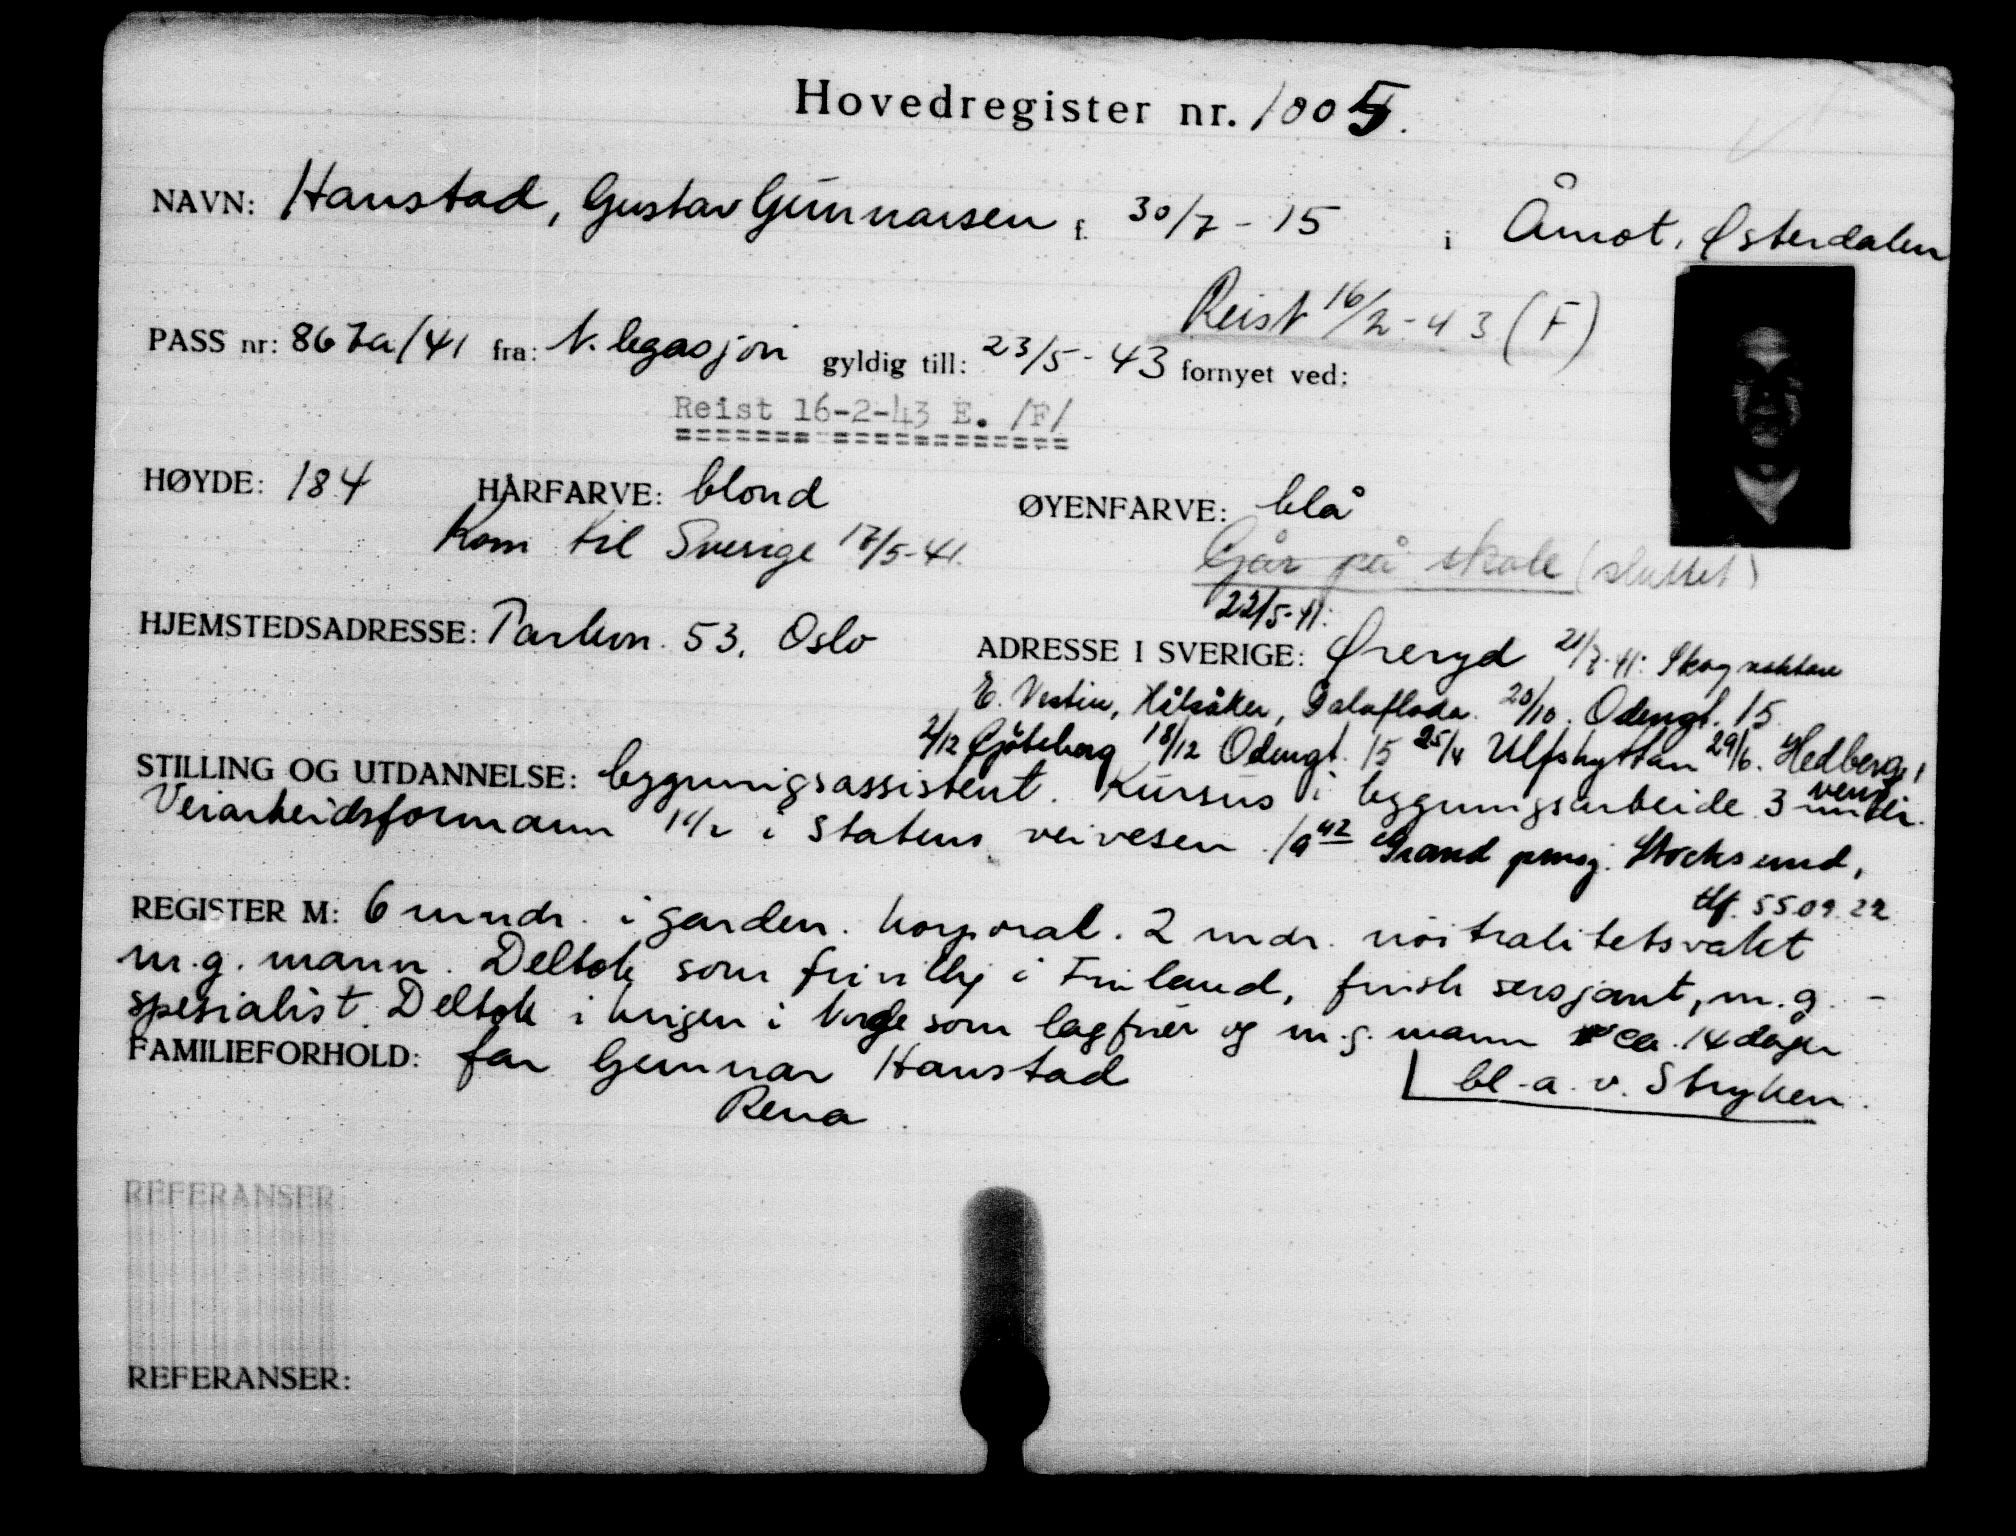 Hovedregister nr. 1005.
NAVN: Hanstad, Gustav Gunnarsen f. 30/7 - 15 i Åmot, Østerdalen
Reist 16/2 - 43 (F)
PASS nr: 867a/41 fra: N. legasjon gyldig till: 23/5 - 43 fornyet ved:
Reist 16-2-43 E. /F/
HØYDE: 184 HÅRFARVE: blond ØYENFARVE: blå
Kom til Sverige 17/5-41. Går på skole (sluttet)
22/5-41:
HJEMSTEDSADRESSE: Parkvn. 53, Oslo ADRESSE I SVERIGE: Øreryd 21/7-41: Skogvaktare
E. Vestin, Hålsåker, Dalafloda. 20/10. Odengt. 15
2/12 Göteborg 18/12 Odengt. 15 25/4 Ulfshyttan 29/6. Hedberg,
STILLING OG UTDANNELSE: bygningsassistent. Kursus i bygningsarbeide 3
Veiarbeidsformann 1 1/2 i Statens veivesen. 1/9 42 Grand pensj. Stocksund,
tlf. 55.09.22
REGISTER M: 6 mndr. i garden. korporal. 2 mdr. nøitralitetsvakt
m.g. mann. Deltok som frivillig i Finland, finsk sersjant, m.g. -
spesialist. Deltok i krigen i Norge som lagfører og m.g. mann ca. 14 dager
FAMILIEFORHOLD: far Gunnar Hanstad bl.a. v. Stryken.
Rena.
REFERANSER
REFERANSER: